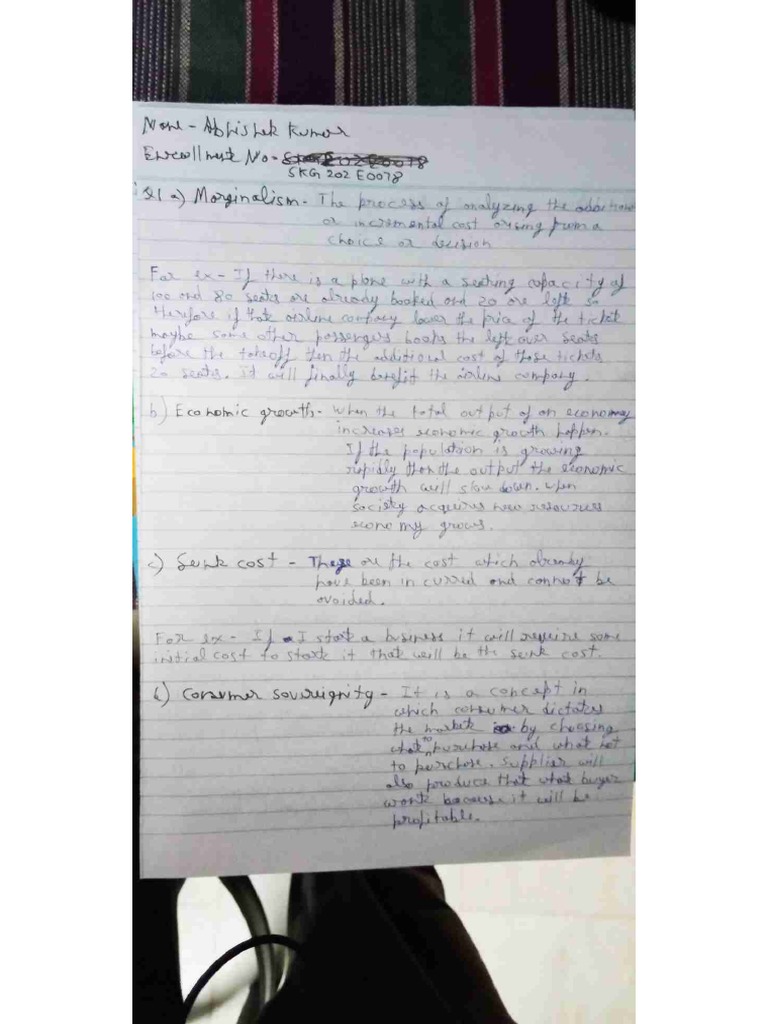 Name - Abhishek Kumar
Enrollment No -
SKG 202 E0078
Q1 a) Marginalism - The process of analyzing the additional
or incremental cost arising from a
choice or decision
For ex - If there is a plane with a seating capacity of
100 and 80 seats are already booked and 20 are left so
therefore if that airline company lower the price of the ticket
maybe some other passengers books the left over seats
before the takeoff then the additional cost of those tickets
20 seats. it will finally benefit the airline company.
b) Economic growth - When the total output of an economy
increases economic growth happen.
If the population is growing
rapidly than the output the economic
growth will slow down. when
society acquires new resources
economy grows.
c) Sunk cost - These are the cost which already
have been in curred and cannot be
avoided.
For ex - If I start a business it will require some
initial cost to start it that will be the sunk cost.
d) Consumer sovereignity - It is a concept in
which consumer dictates
the market by choosing
what to purchase and what not
to purchase. Supplier will
also produce that what buyer
want because it will be
profitable.